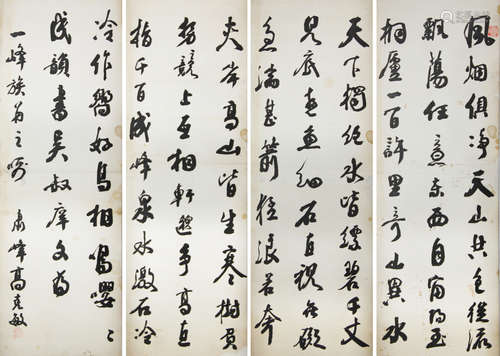 風烟俱净天山共色從流
飄蕩任意東西自富陽至
桐廬一百許里奇山異水
天下獨絕水皆縹碧千丈
見底遊魚細石直視無礙
急湍甚箭猛浪若奔
夾岸高山皆生寒樹負
勢競上互相軒邈爭高直
指千百成峰泉水激石泠
泠作響好鳥相鳴嚶〻
成韻書吳叔庠文為
一峰族翁之囑 肅峰高克敏